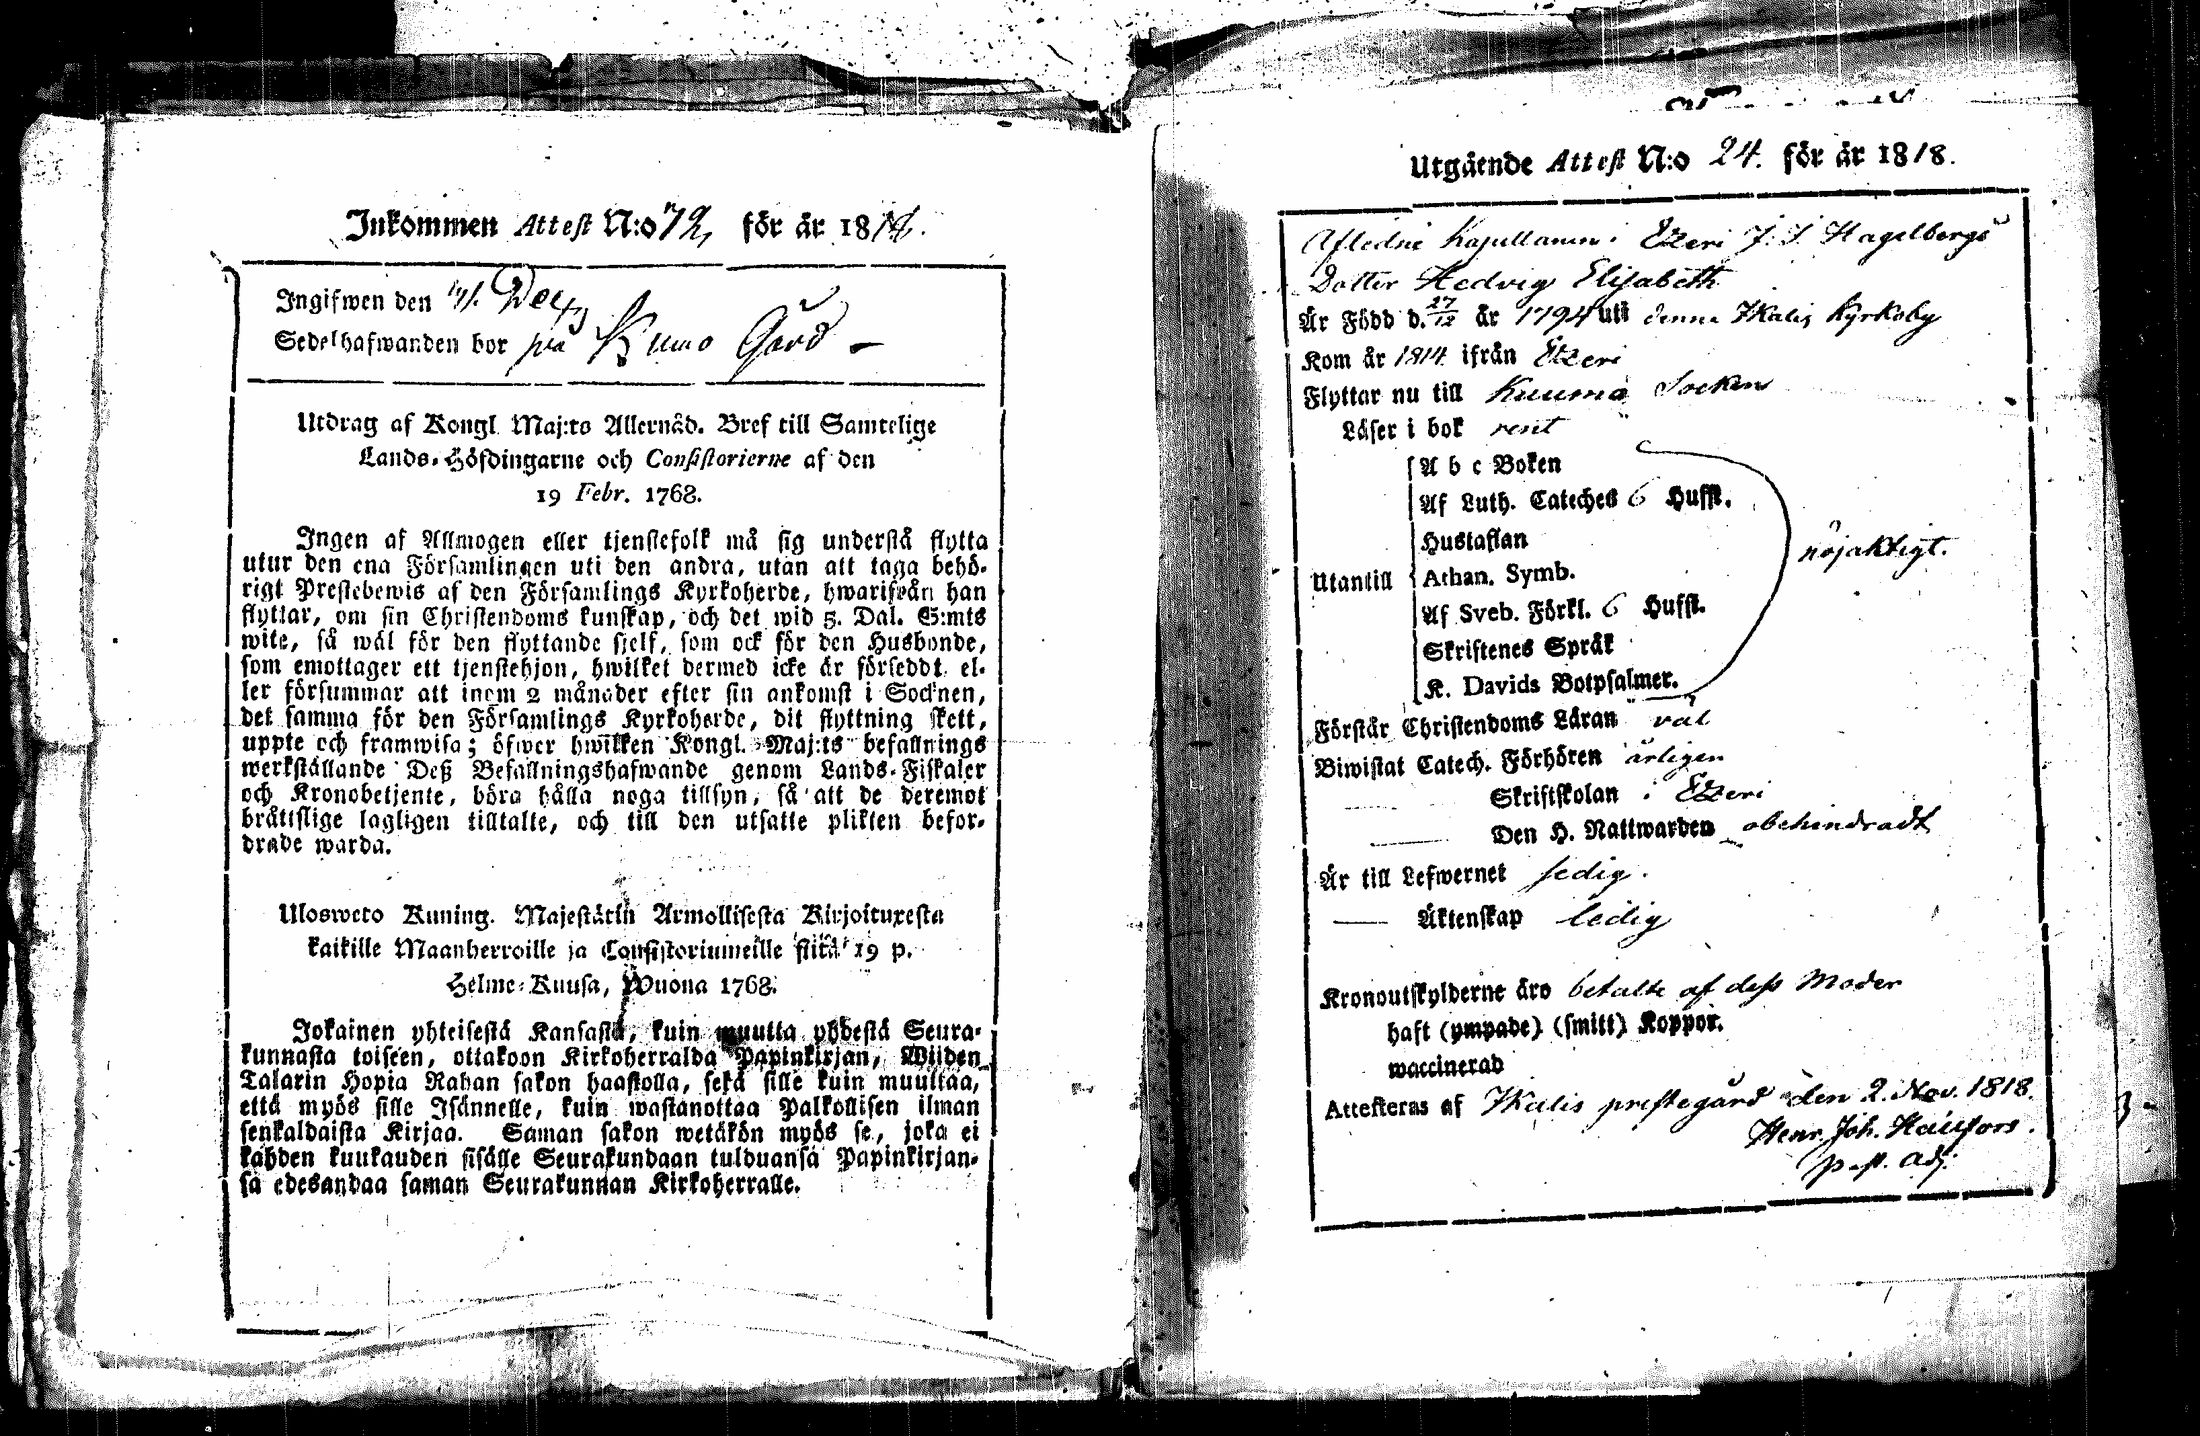 Inkommen Attest N:o 72, för år 1818.
Ingifwen den Dec
Sedelhafwanden bor på Kumo Gård –
Utdrag af Kongl. Maj:ts Allernåd. Bref till Samtelige
Lands-Höfdingarne och Consistorierne af den
19 Febr. 1768.
Ingen af Allmogen eller tjenstefolk må sig understå flytta
utur den ena Församlingen uti den andra, utan att taga behö-
rigt Prestebewis af den Församlings Kyrkoherde, hwarifrån han
flyttar, om sin Christendoms kunskap, och det wid 5. Dal. S:mts
wite, så wäl för den flyttande sjelf, som ock för den Husbonde,
som emottager ett tjenstehjon, hwilket dermed icke är förseddt, el-
ler försummar att inom 2 månader efter sin ankomst i Socknen,
det samma för den Församlings Kyrkoherde, dit flyttning skett,
uppte och framwisa; öfwer hwilken Kongl. Maj:ts befallnings
werkställande Deß Befallningshafwande genom Lands-Fiskaler
och Kronobetjente, böra hålla noga tillsyn, så att de deremot
bråttslige lagligen tilltalte, och till den utsatte plikten befor-
drade warda.
Ulosweto Kuning. Majestätin Armollisesta Kirjoituxesta
kaikille Maanherroille ja Consistoriumeille siitä 19 p.
Helme-Kuusa, Wuona 1768.
Jokainen yhteisestä Kansasta, kuin muutta yhdestä Seura-
kunnasta toiseen, ottakoon Kirkoherralda Papinkirjan, Wiiden
Talarin Hopia Rahan sakon haastolla, sekä sille kuin muuttaa,
että myös sille Isännelle, kuin wastanottaa Palkollisen ilman
senkaldaista Kirjaa. Saman sakon wetäkön myös se, joka ei
kahden kuukauden sisälle Seurakundaan tulduansa Papinkirjan-
sa edesandaa saman Seurakunnan Kirkoherralle.
Utgående Attest N:o 24. för år 1818.
Afledne Kapellanen i Etzeri J. J. Hagelbergs
Dotter Hedvig Elisabeth
Är Född d. 27/12 år 1794 uti denna Ikalis Kyrkoby
Kom år 1814 ifrån Etzeri
Flyttar nu till Kuumo Socken
Läser i bok rent
A b c Boken
Af Luth. Cateches 6 Hufst.
Hustaflan
Utantill Athan. Symb.
Af Sveb. Förkl. 6 Hufst.
Skriftenes Språk
K. Davids Botpsalmer.
nöjaktigt.
Förstår Christendoms Läran väl
Biwistat Catech. Förhören årligen
Skriftskolan i Etzeri
Den H. Nattwarden obehindradt
Är till Lefwernet sedig.
Äktenskap ledig
Kronoutskylderne äro betalte af dess Moder
haft (ympade) (smitt) Koppor.
waccinerad
Attesteras af Ikalis prestegård den 2. Nov. 1818.
Henr. Joh.
past. Adj.